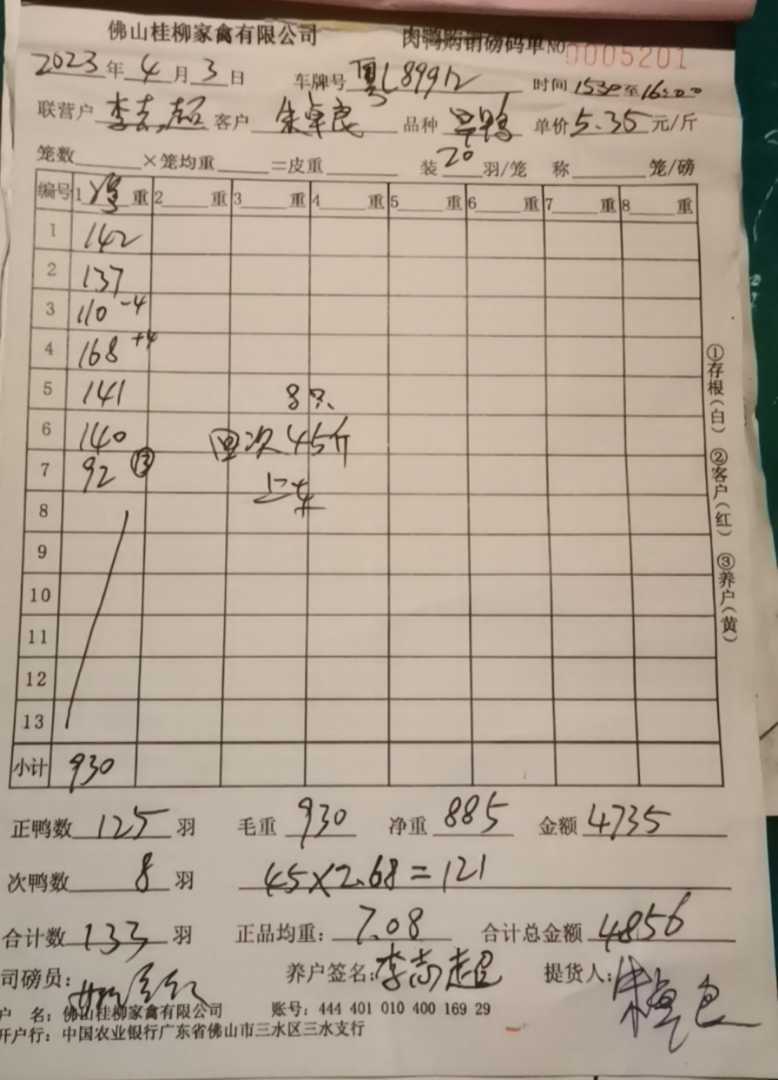 佛山桂柳家禽有限公司 肉鸭购销磅码单 NO 0005201
2023年4月3日 车牌号 L899 时间 1530至16:00
联营户 李志超 客户 朱卓良 品种 鸭 单价 5.35 元/斤
笼数 ×笼均重 =皮重 装 20 羽/笼 称 笼/磅
编号 1 重 2 重 3 重 4 重 5 重 6 重 7 重 8 重
1 142
2 137
3 110 -4
4 168 +4
5 141 8只
6 140 次45斤
7 92 ⑬ 上车
8
9
10
11
12
13
小计 930
①存根(白) ②客户(红) ③养户(黄)
正鸭数 125 羽 毛重 930 净重 885 金额 4735
次鸭数 8 羽 45×2.68=121
合计数 133 羽 正品均重: 7.08 合计总金额 4856
司磅员: 养户签名: 李志超 提货人: 朱卓良
户 名: 佛山桂柳家禽有限公司 账号: 444 401 010 400 169 29
开户行: 中国农业银行广东省佛山市三水区三水支行